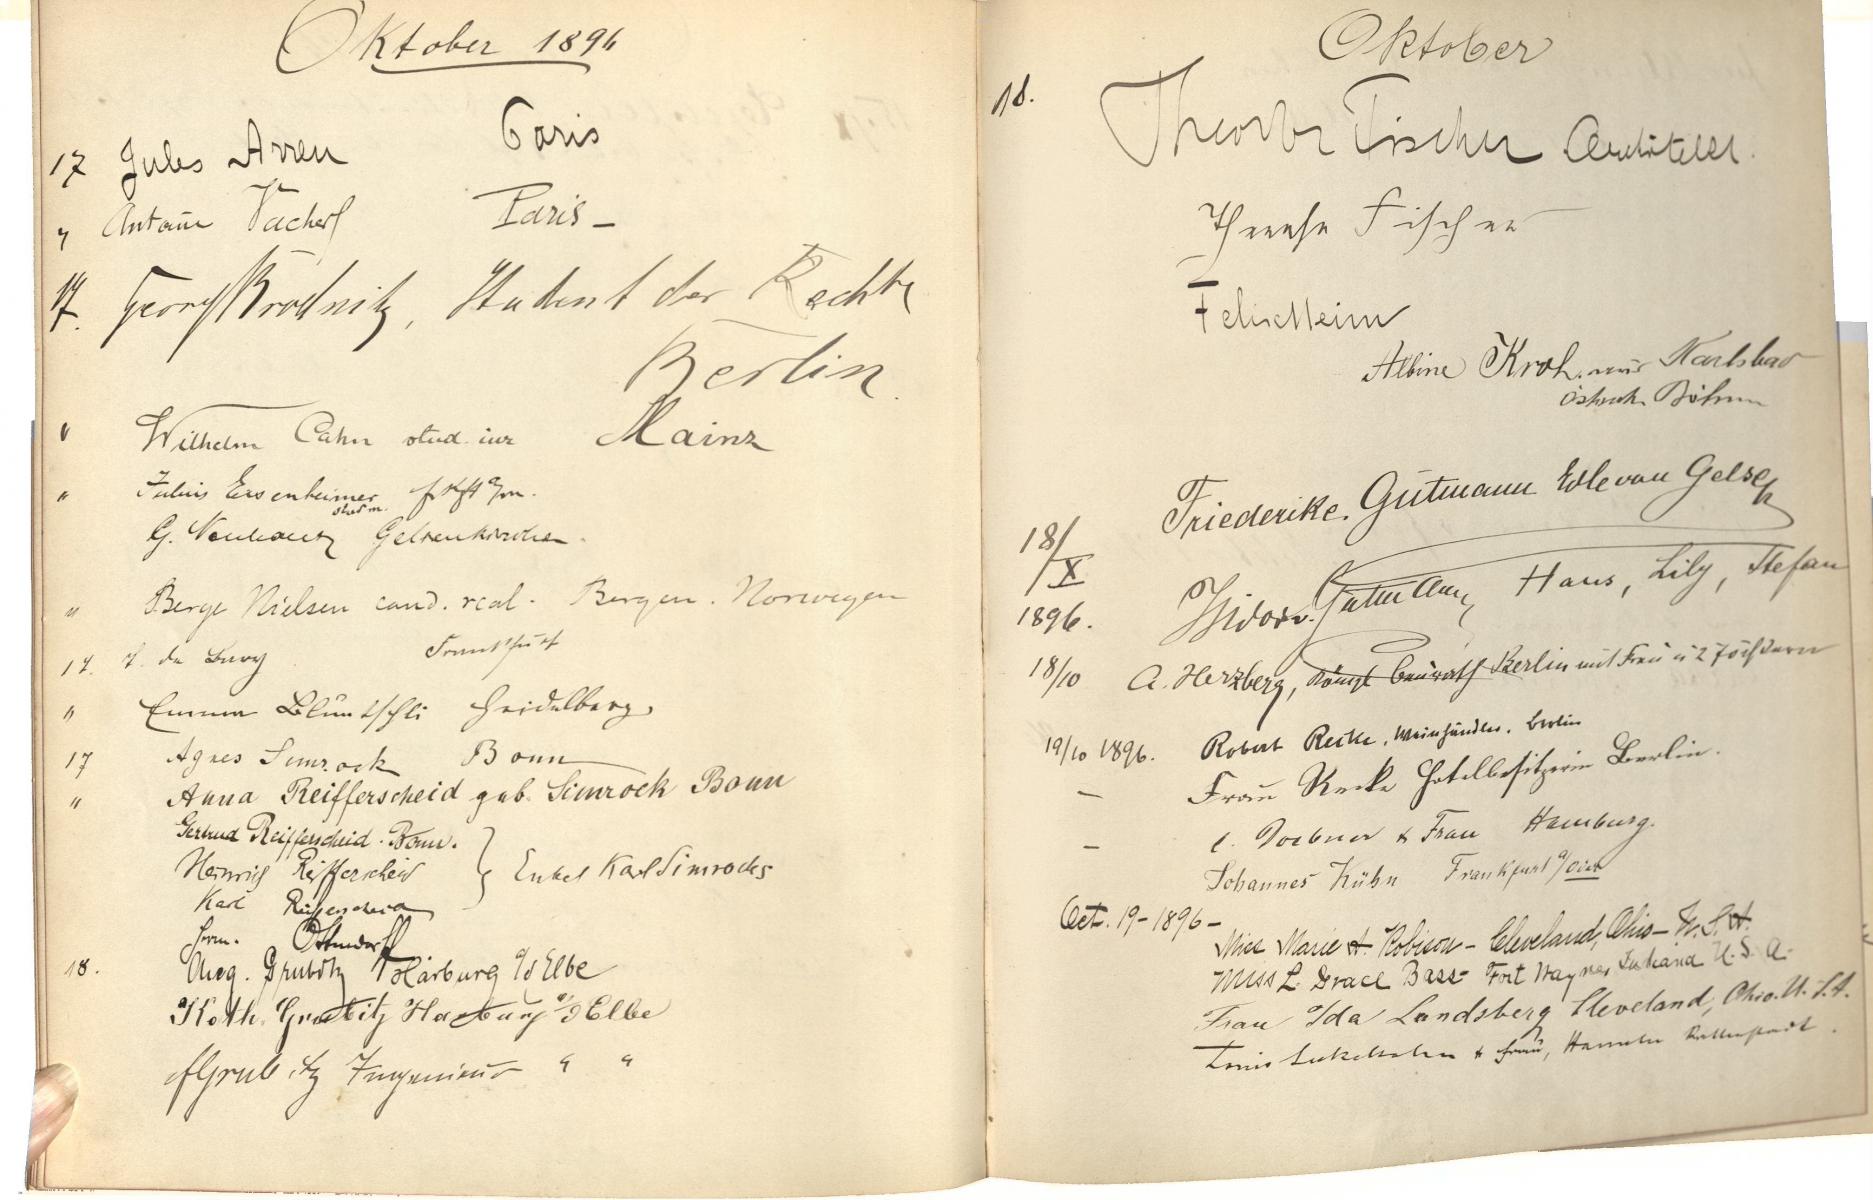 Oktober 1896
17 Jules Arren Paris
" Antoine Vachert Paris –
17. Georg Brodnitz, Student der Rechte
Berlin.
" Wilhelm Cahn stud. iur Mainz
" Julius Eisenheimer
stud m.
G. Gelsenkirchen.
" Berge Nielsen cand. real. Bergen. Norwegen
17. Frankfurt
" Emma Bluntschli Heidelberg.
17 Agnes Simrock Bonn
" Anna Reifferscheid geb. Simrock Bonn
Gertrud Reifferscheid. Bonn.
Heinrich Reifferscheid } Enkel Karl Simrocks
Karl Reifferscheid
Herm. Ottendorff
18. Aug. Grubitz Harburg a/d Elbe
Kath. Grubitz Harburg a/d Elbe
Grubitz Ingenieur " "
Oktober
18. Theodor Fischer Architekt.
Therese Fischer
Albine Kroh aus Karlsbad
Böhmen
Friederike Gutmann Edle von Gelse
18/X 1896. Isidor v. Gutmann, Hans, Lily, Stefan
18/10 A. Herzberg, Königl Baurath Berlin mit Frau u 2 Töchtern
19/10 1896. Robert Recke, Weinhändler. Berlin
– Frau Recke Hotelbesitzerin Berlin.
– & Frau Hamburg.
Johannes Kühn Frankfurt a/Oder
Oct. 19 – 1896 –
Miss Marie A. Robison – Cleveland, Ohio – U. S. A.
Miss L. Grace Bass – Fort Wayne, Indiana U. S. A.
Frau Ida Landsberg Cleveland, Ohio. U. S. A.
& Frau, Hameln